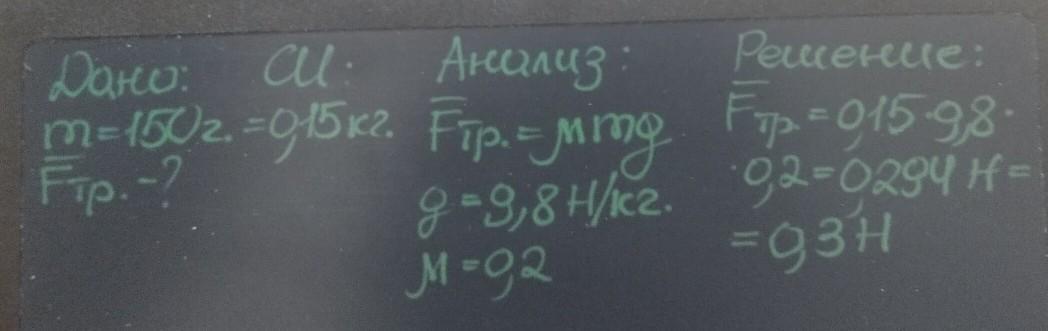 Дано:
m=150г.
F̅тр.-?
СИ:
=0,15кг.
Анализ:
F̅тр.=μmg
g=9,8Н/кг.
μ=0,2
Решение:
F̅тр.=0,15·9,8·
·0,2=0,294Н=
=0,3Н